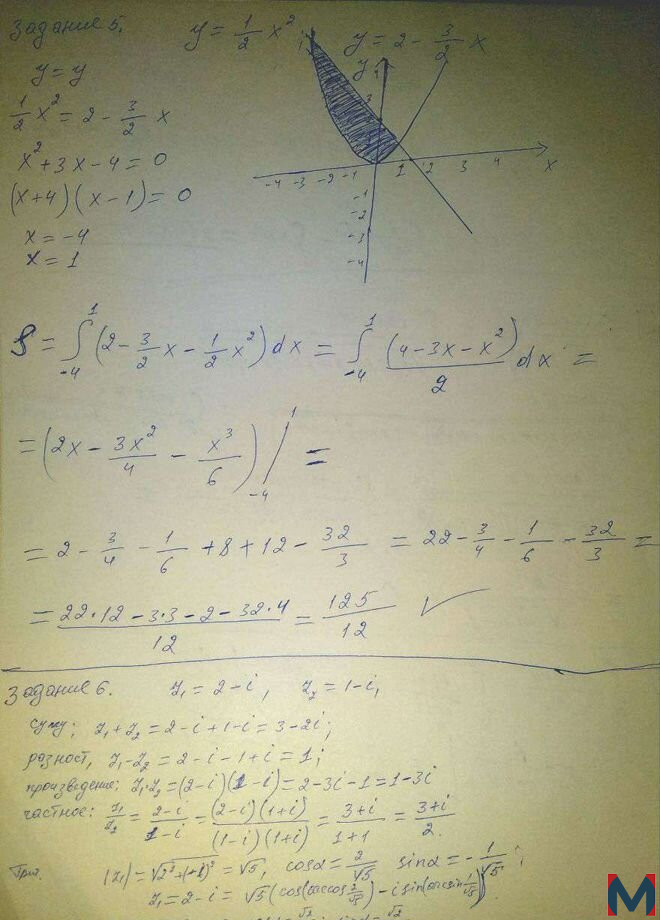 Задание 5. y = 1/2 x² y = 2 - 3/2 x
y = y
1/2 x² = 2 - 3/2 x
x² + 3x - 4 = 0
(x+4)(x-1) = 0
x = -4
x = 1
y
-4 -3 -2 -1 1 2 3 4 x
-1
-2
-3
-4
S = ∫₋₄¹ (2 - 3/2 x - 1/2 x²) dx = ∫₋₄¹ (4 - 3x - x²)/2 dx =
= (2x - 3x²/4 - x³/6) |₋₄¹ =
= 2 - 3/4 - 1/6 + 8 + 12 - 32/3 = 22 - 3/4 - 1/6 - 32/3 =
= (22·12 - 3·3 - 2 - 32·4)/12 = 125/12 ✓
Задание 6. z₁ = 2 - i, z₂ = 1 - i,
сумму; z₁ + z₂ = 2 - i + 1 - i = 3 - 2i;
разност, z₁ - z₂ = 2 - i - 1 + i = 1;
произведение; z₁·z₂ = (2-i)(1-i) = 2 - 3i - 1 = 1 - 3i
частное: z₁/z₂ = (2-i)/(1-i) = (2-i)(1+i)/(1-i)(1+i) = (3+i)/(1+1) = (3+i)/2.
|z₁| = √(2²+(-1)²) = √5, cos α = 2/√5 sin α = -1/√5;
z₁ = 2 - i = √5 (cos(arccos 2/√5) - i sin(arcsin 1/√5))
M